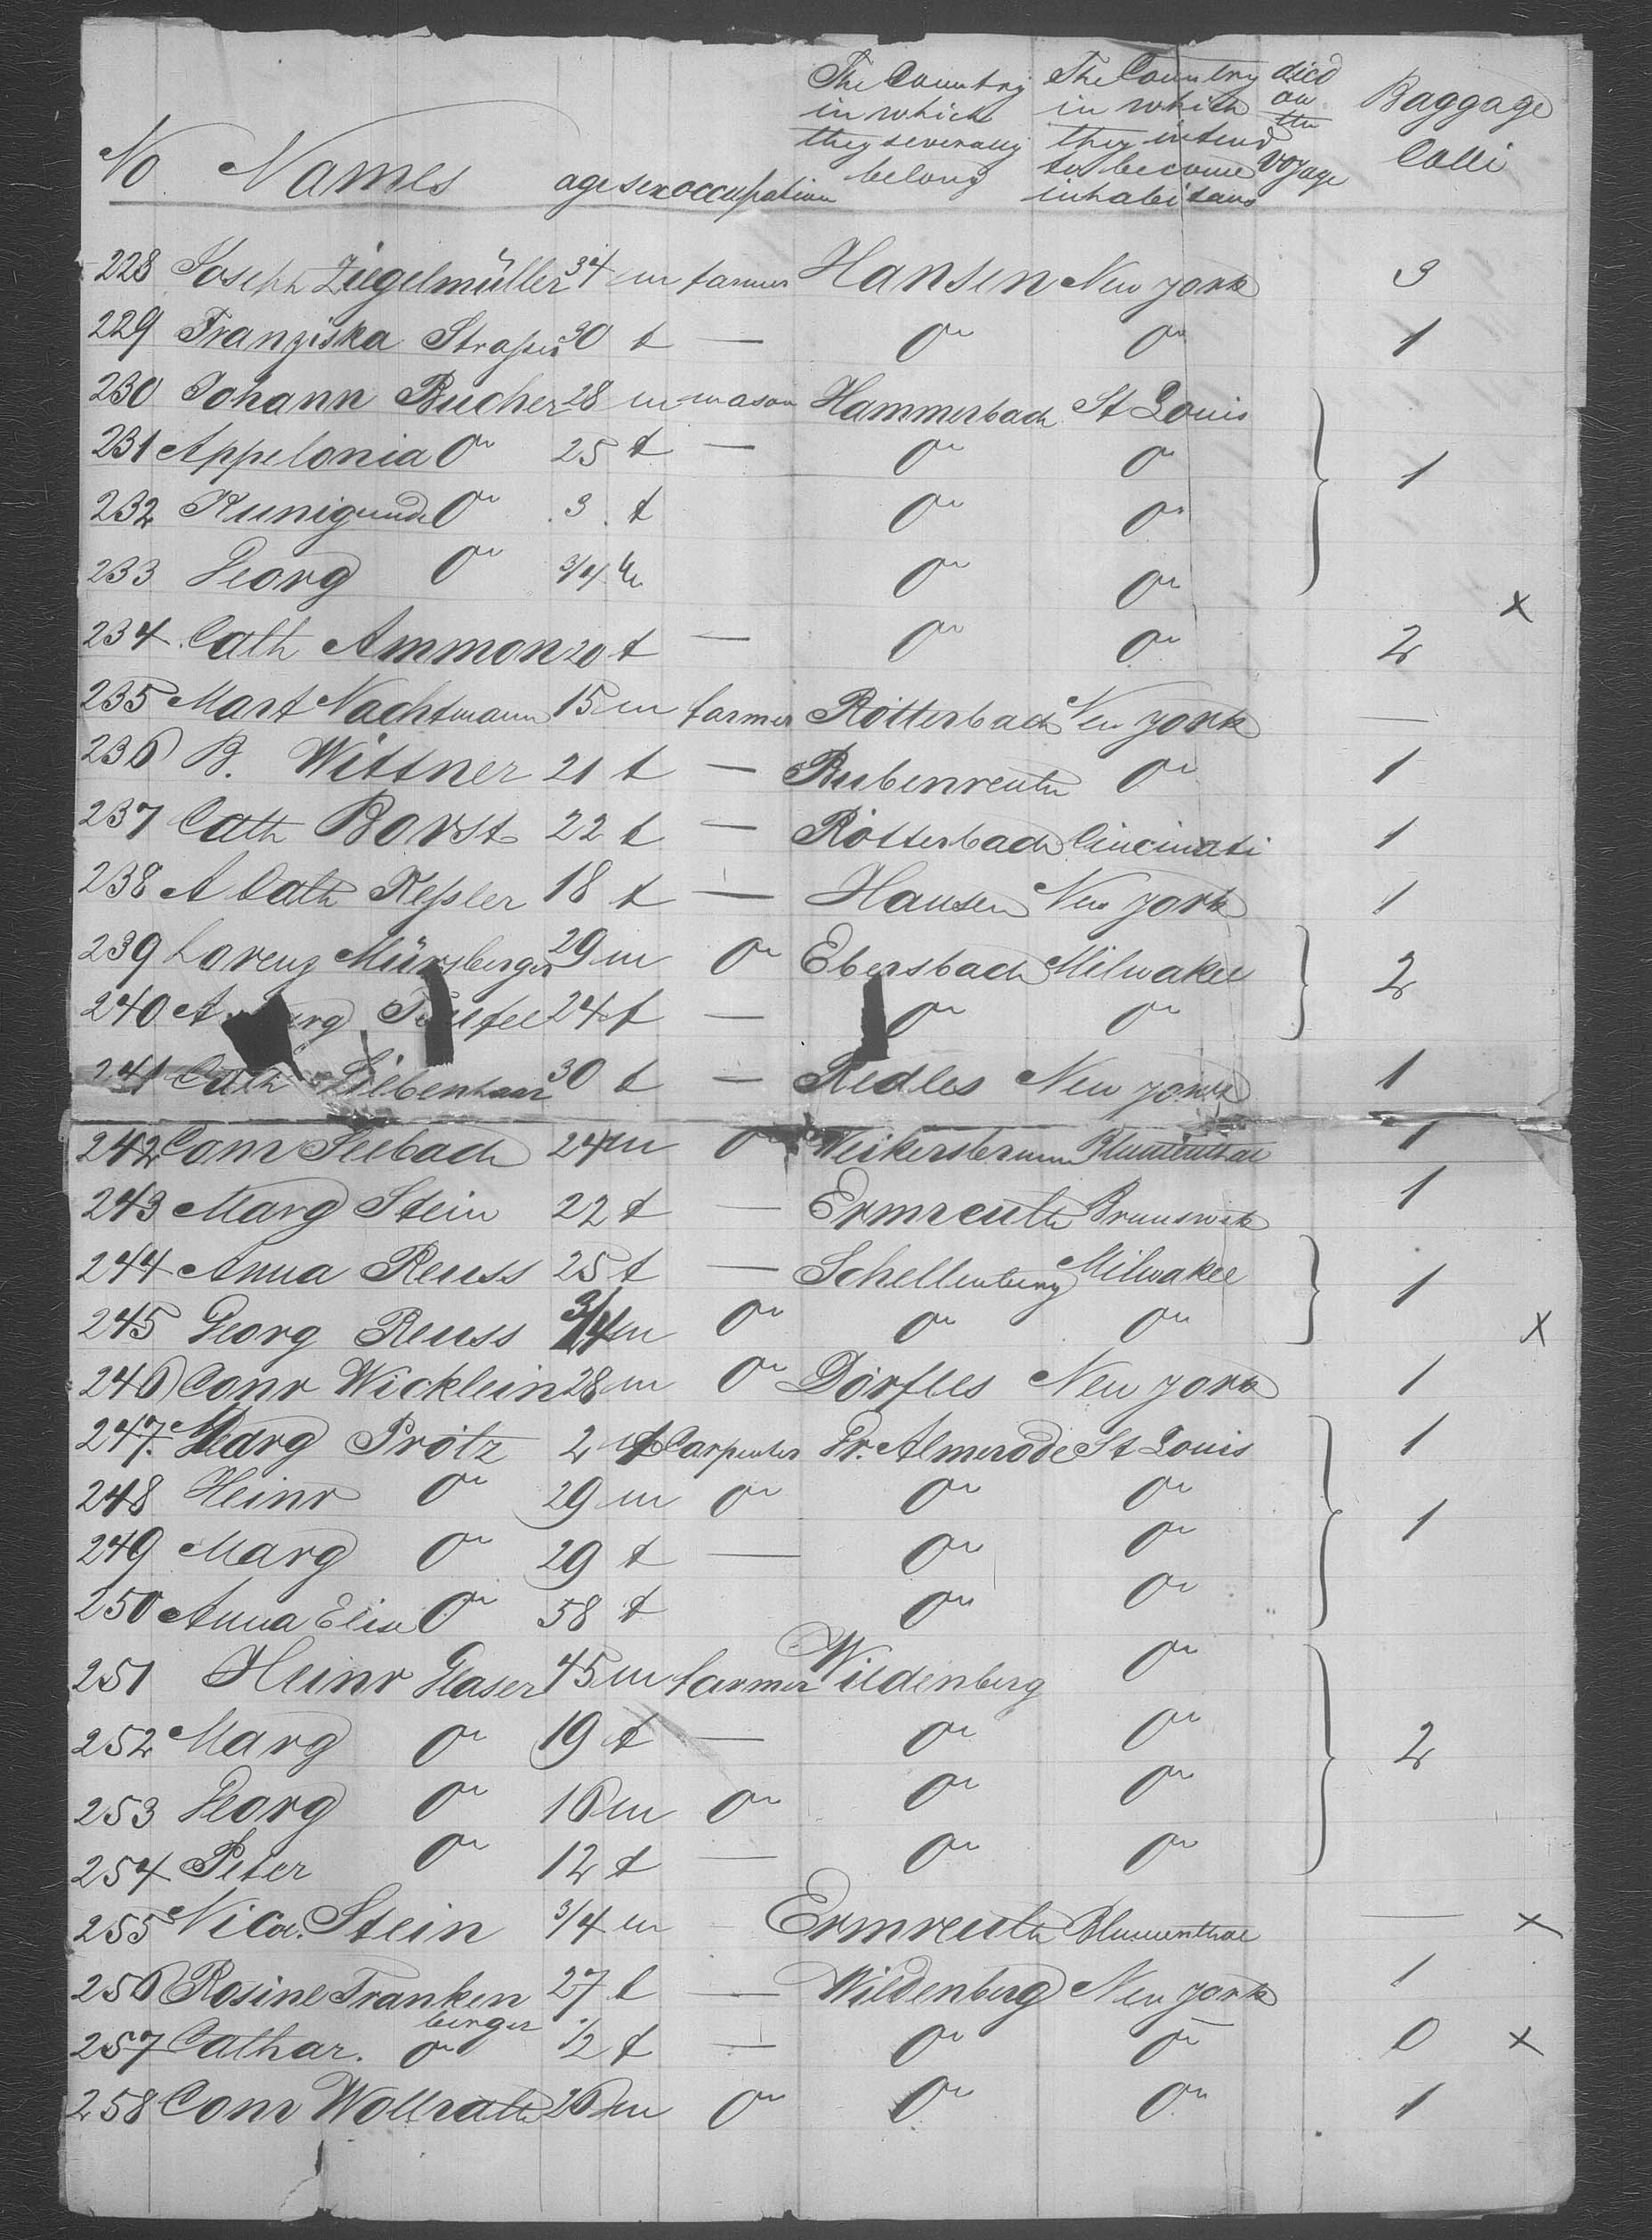 No Names age sex occupation The Country in which they severally belong The Country in which they intend to become inhabitans died on the voyage Baggage Colli
228 Joseph Ziegelmüller 34 m farmer Hansen New york 3
229 Franziska 30 f — do do 1
230 Johann Bucher 28 m mason Hammerbach St Louis
231 Appelonia do 25 f — do do 1
232 Kunigunde do 3 f do do
233 Georg do 3/4 m do do
x
234 Cath Ammon 20 f — do do 2
235 Mart Nachtmann 15 m farmer Rötterbach New york —
236 B. Wittner 21 f — Bubenreuth do 1
237 Cath Borst 22 f — Rötterbach Cincinati 1
238 A Cath Keßler 18 f — Hausen New york 1
239 Lorenz Münzberger 29 m do Ebersbach Milwakee 2
240 A 24 f — do do
241 Cath Liebenhaar 30 f — Redles New york 1
242 Conr Seebach 24 m do Weikersbrunn Blumenthal 1
243 Marg Stein 22 f — Ermreuth Brunswik 1
244 Anna Reuss 25 f — Schellenberg Milwakee 1
245 Georg Reuss 3/4 m do do do x
246 Conr Wicklein 28 m do Dörfles New york 1
247. Georg Prötz 2 carpenter Gr. Almerode St Louis 1
248 Heinr do 29 m do do do
249 Marg do 29 f — do do 1
250 Anna Elise do 58 f do do
251 Heinr Glaser 45 m farmer Wildenberg do
252 Marg do 19 f — do do 2
253 Georg do 16 m do do do
254 Peter do 12 f — do do
255 Nicol. Stein 3/4 m Ermreuth Blumenthal — x
256 Rosine Frankenberger 27 f — Wildenberg New york 1
257 Cathar. do 1/2 f — do do 0 x
258 Conr Wollrath 26 m do do do 1